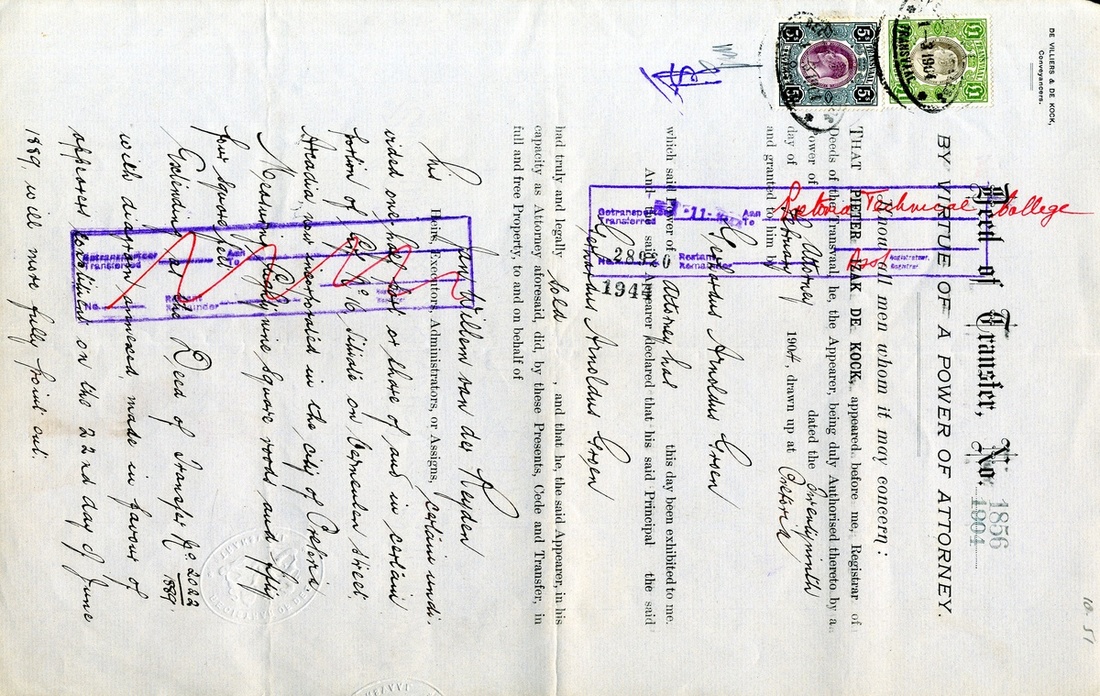 DE VILLIERS & DE KOCK,
Conveyancers.
10. 51
Deed of Transfer, No 1856
1904
BY VIRTUE OF A POWER OF ATTORNEY.
Pretoria Technical College
Know all men whom it may concern :
THAT PIETER IZAK DE KOCK, appeared before me, Registrar of
Deeds of the Transvaal, he, the Appearer, being duly Authorised thereto by a
Power of Attorney dated the twentyninth
day of February 1904, drawn up at Pretoria
and granted to him by
Gerhardus Arnoldus Groen
which said Power of Attorney has this day been exhibited to me.
And the said Appearer declared that his said Principal the said
Gerhardus Arnoldus Groen
had truly and legally sold , and that he, the said Appearer, in his
capacity as Attorney aforesaid, did, by these Presents, Cede and Transfer, in
full and free Property, to and on behalf of
Jan Willem van der Heyden
his Heirs, Executors, Administrators, or Assigns, certain undi-
vided one half part or share of and in certain
portion of Erf No 16, situate on Vermeulen Street
Arcadia, now incorporated in the City of Pretoria.
Measuring Eighty nine square roods and fifty
four square feet
Extending as the Deed of Transfer No. 2022
1889
with diagram annexed, made in favour of
appearer's constituent on the 22nd day of June
1889, will more fully point out.
TRANSVAAL
£1
£1
1-3 1904
TRANSVAAL
5s
5s
Getransporteer
Transferred
Aan
To
11
No. 28926
1941
Restant
Remainder
Registrateur
Registrar
Getransporteer
Transferred
Aan
To
No.
Restant
Remainder